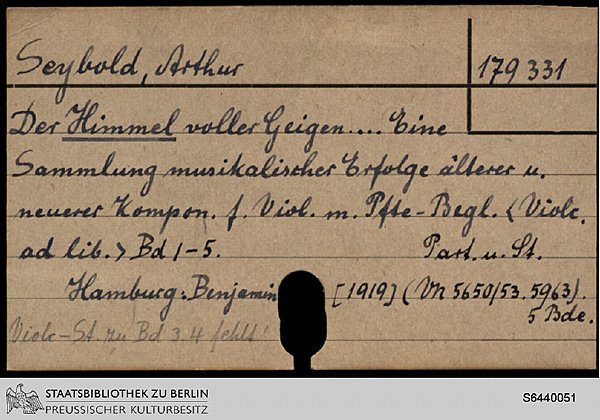 Seybold, Arthur
179 331
Der Himmel voller Geigen.... Eine
Sammlung musikalischer Erfolge älterer u.
neuerer Kompon. f. Viol. m. Pfte-Begl. <Violc.
ad lib.> Bd 1-5. Part. u. St.
Hamburg: Benjamin [1919] (Vn 5650/53. 5963).
5 Bde.
Violc-St. zu Bd 3.4 fehlt!
STAATSBIBLIOTHEK ZU BERLIN
PREUSSISCHER KULTURBESITZ
S6440051